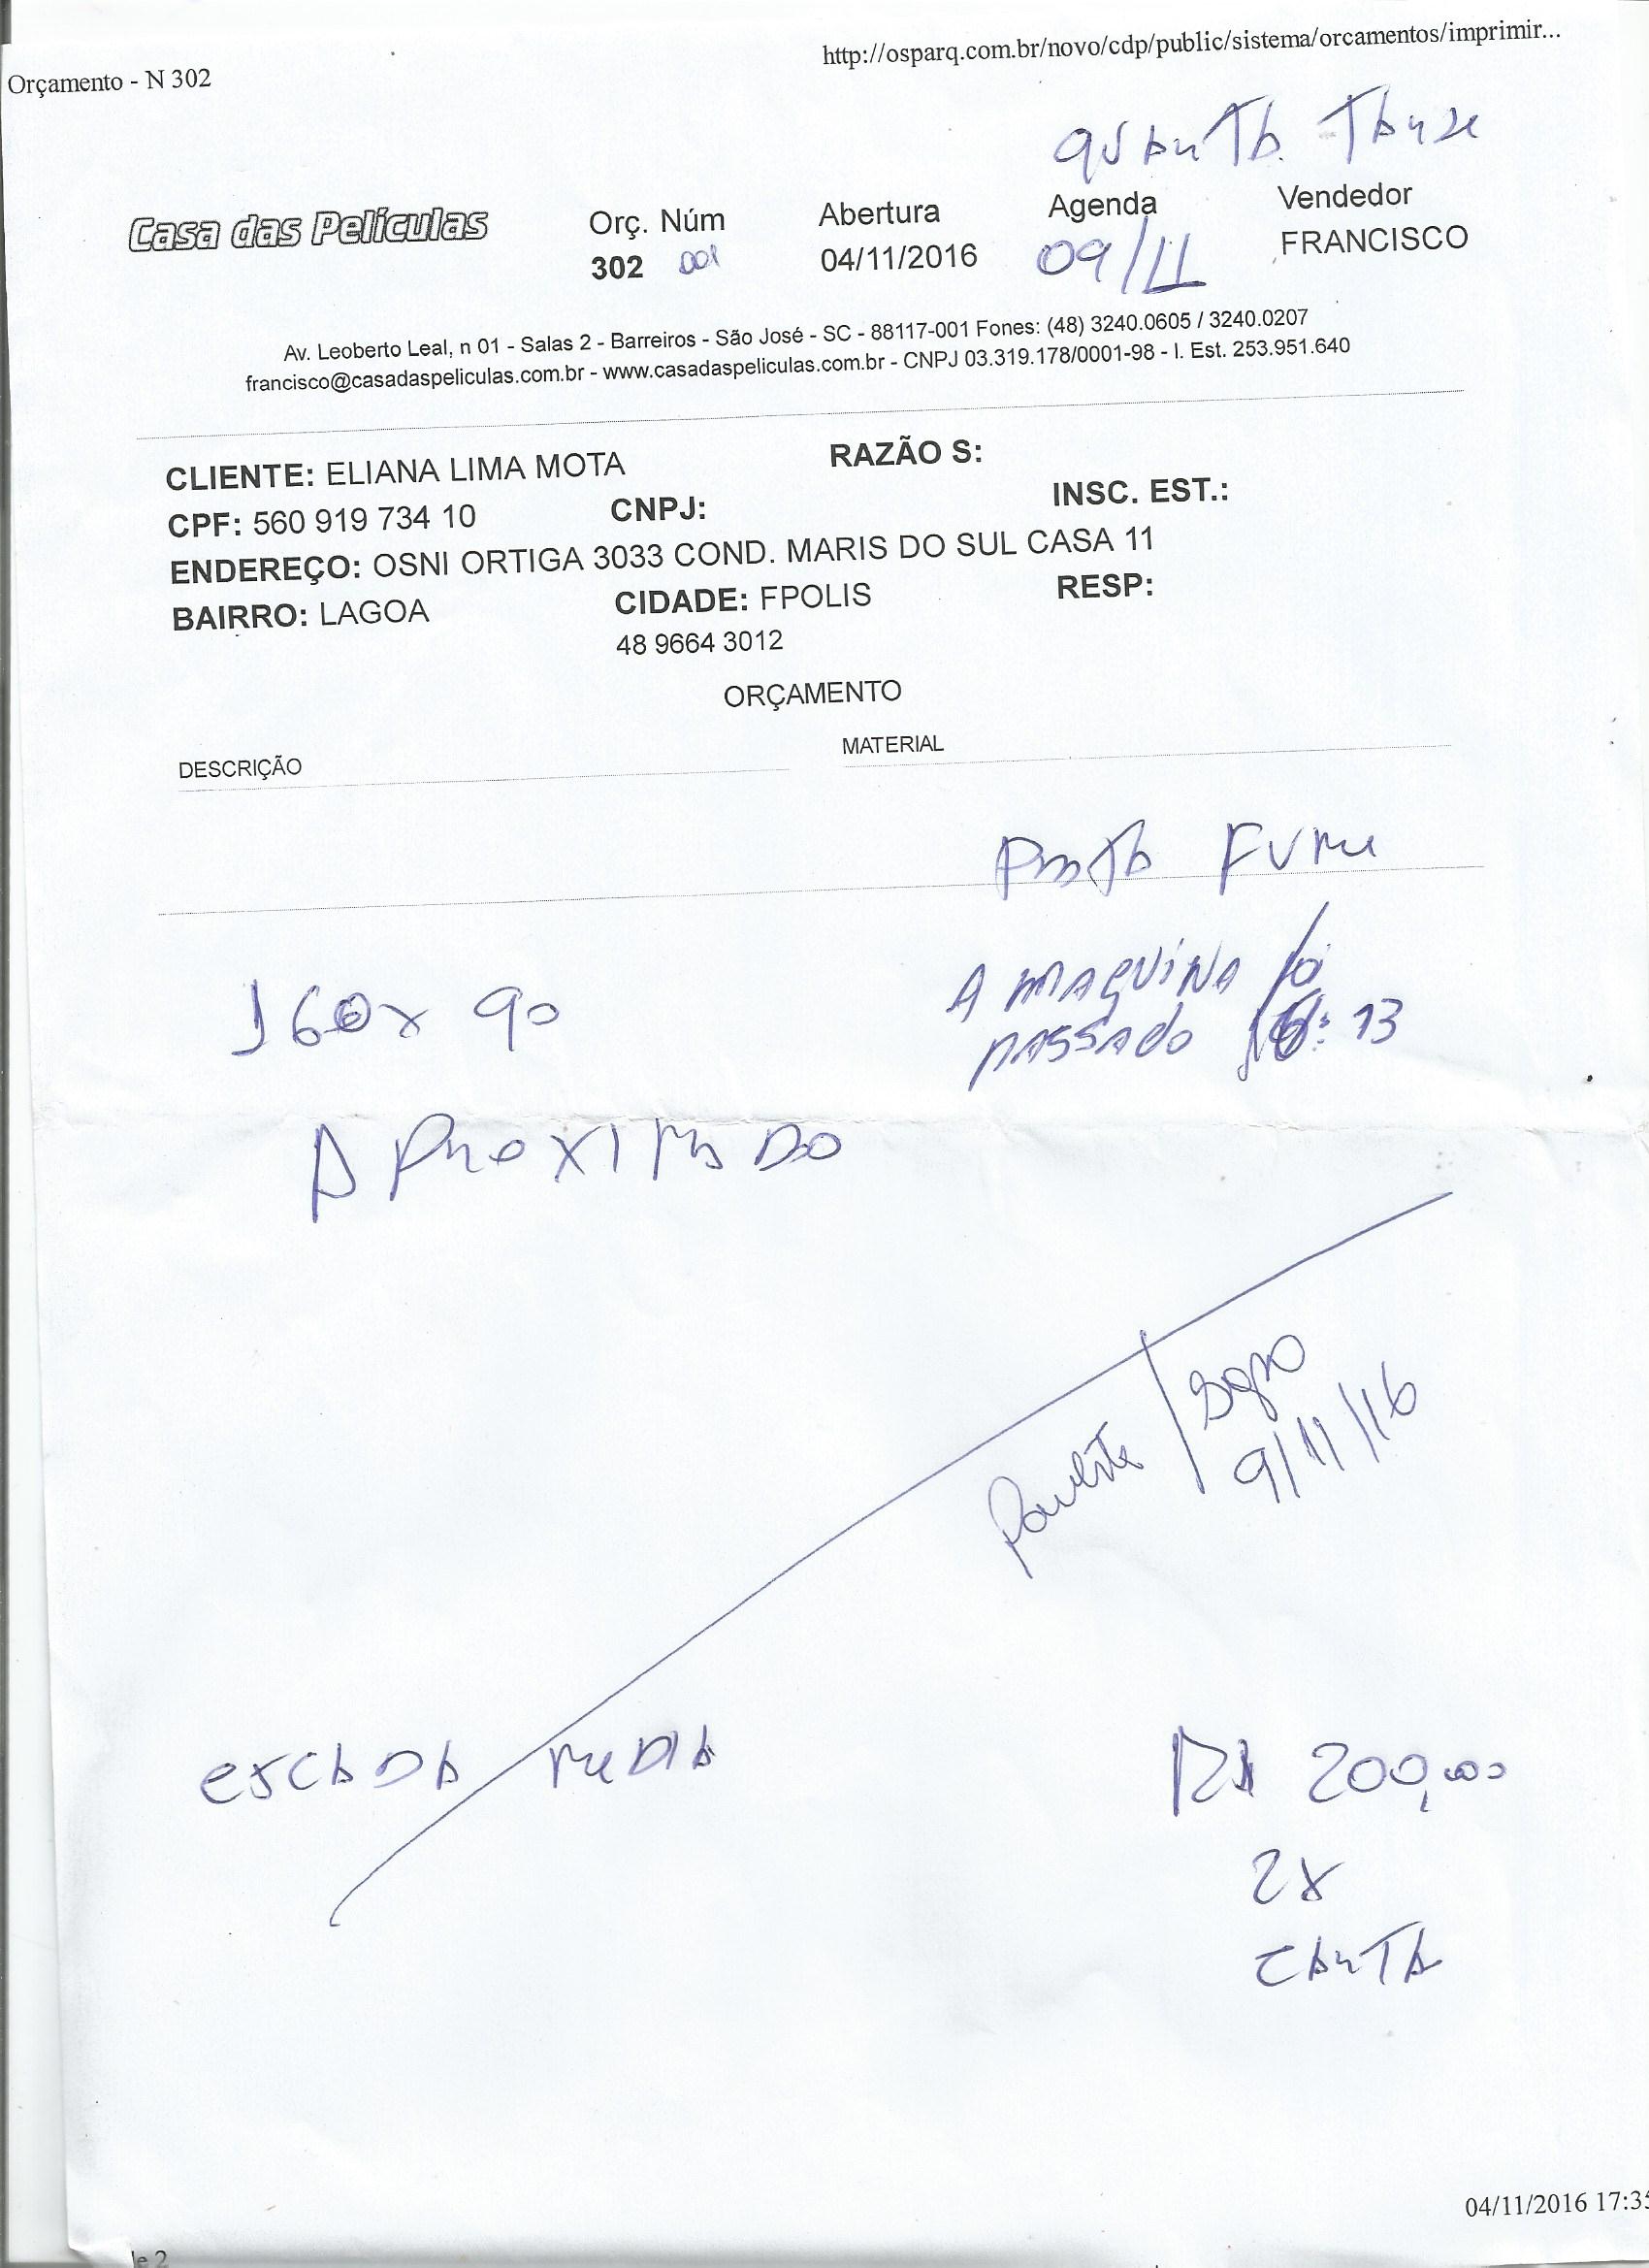 Orçamento - N 302
http://osparq.com.br/novo/cdp/public/sistema/orcamentos/imprimir...
Casa das Películas
Orç. Núm
Abertura
Agenda
Vendedor
302 001
04/11/2016
09/11
FRANCISCO
Av. Leoberto Leal, n 01 - Salas 2 - Barreiros - São José - SC - 88117-001 Fones: (48) 3240.0605 / 3240.0207
francisco@casadaspeliculas.com.br - www.casadaspeliculas.com.br - CNPJ 03.319.178/0001-98 - I. Est. 253.951.640
CLIENTE: ELIANA LIMA MOTA RAZÃO S:
CPF: 560 919 734 10 CNPJ: INSC. EST.:
ENDEREÇO: OSNI ORTIGA 3033 COND. MARIS DO SUL CASA 11
BAIRRO: LAGOA CIDADE: FPOLIS RESP:
48 9664 3012
ORÇAMENTO
DESCRIÇÃO
MATERIAL
FUME
160x90
A MAQUINA
PASSADO : 13
APROXIMADO
9/11/16
ESCADA MEDIA
R$ 200,00
2x
CARTA
04/11/2016 17:35